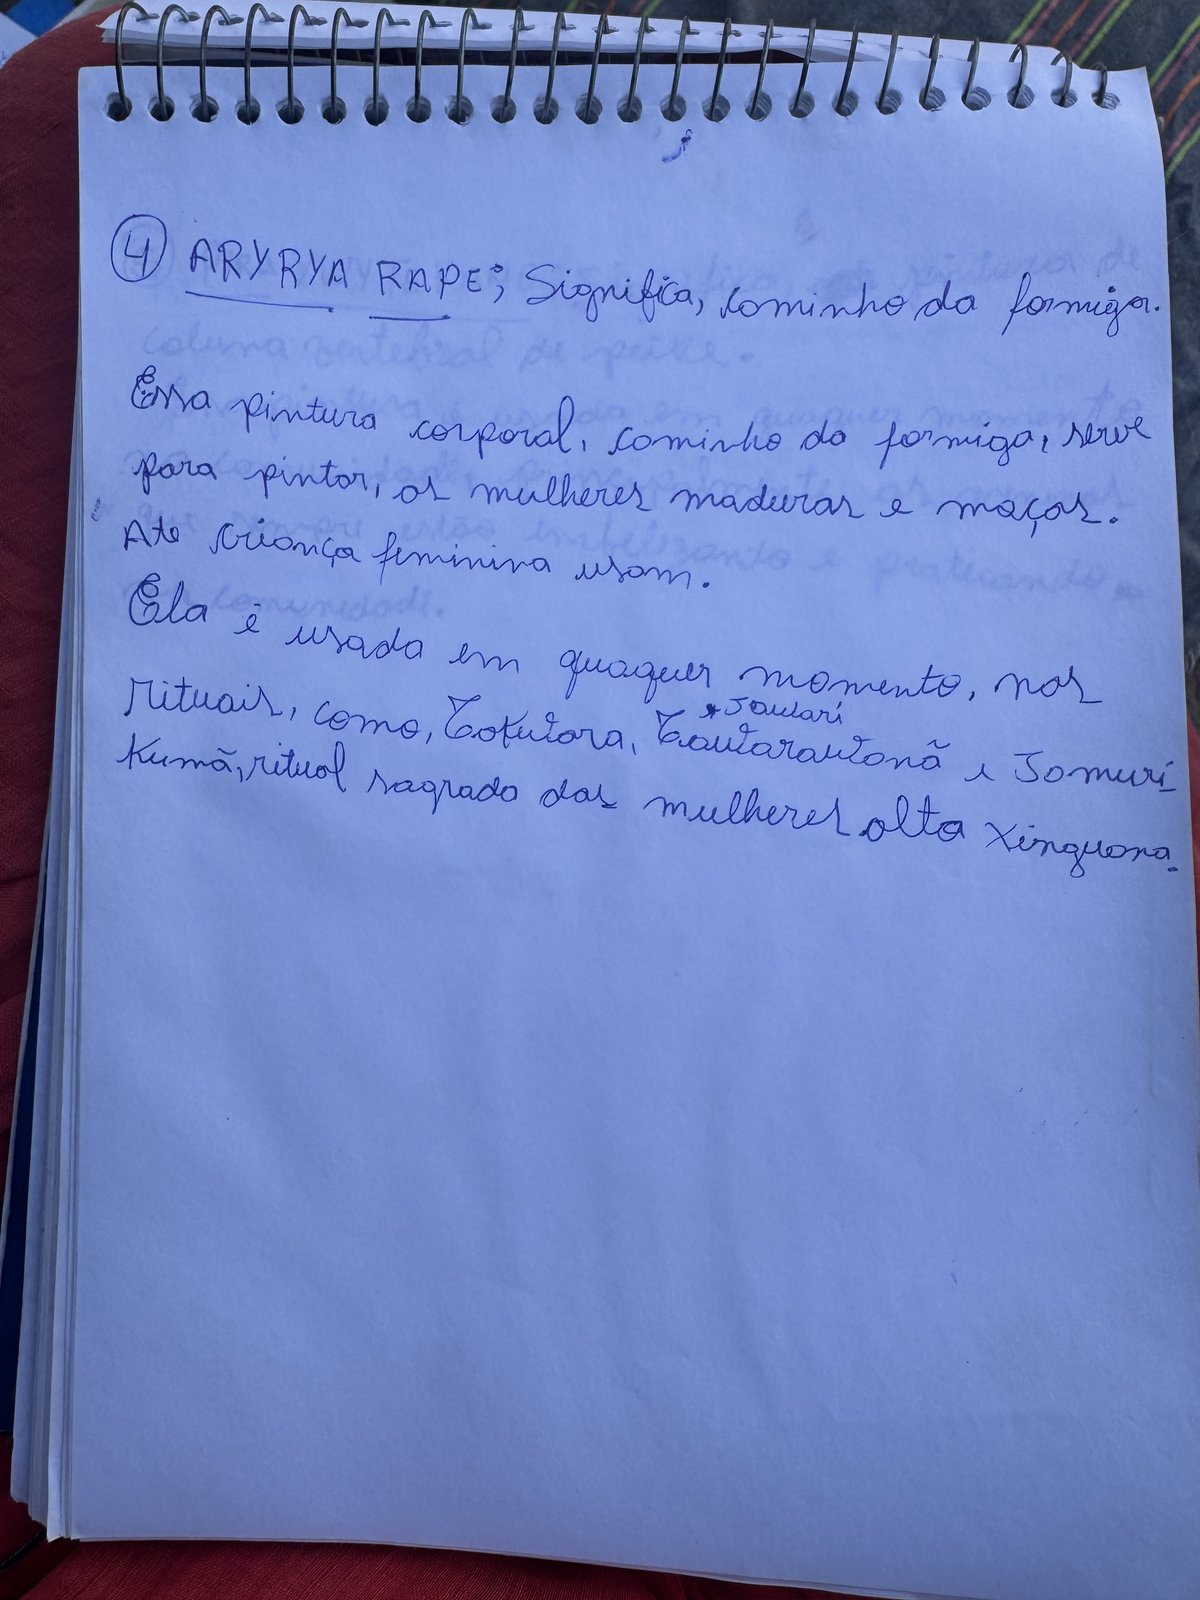 ④ ARYRYA RAPE; Significa, caminho da formiga.
Essa pintura corporal, caminho da formiga, serve
para pintar, as mulheres maduras e maças.
Ate criança feminina usam.
Ela é usada em quaquer momento, nas
*Jawari
rituais, como, Takwara, Tawarawanã e Jamuri
Kumã, ritual sagrado das mulheres alto xinguana.